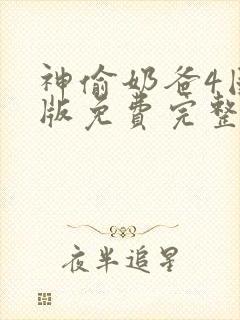 神偷奶爸4国
版免费完整
夜半追星